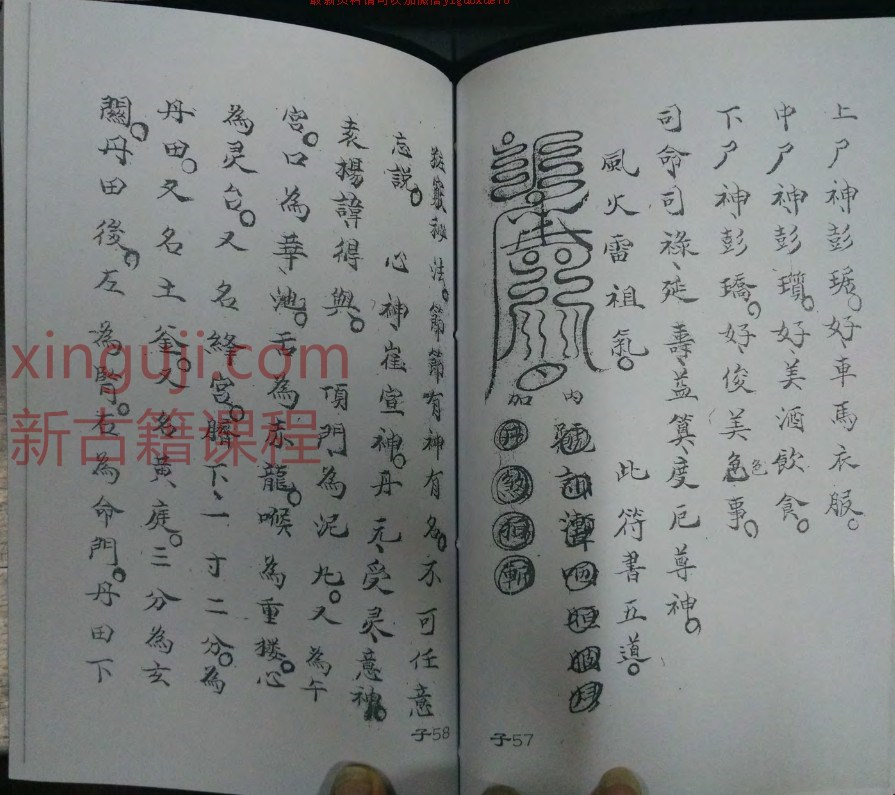 最新资料请可以加微信yiguoxue10
上尸神彭琚。好車馬衣服。
中尸神彭瓆。好美酒飲食。
下尸神彭璚。好俊美色色事。
司命司祿、延壽益筭、度厄尊神。
風火雷祖氣。 此符書五道。
內
加
子57
秘法。節節有神有名。不可任意
忘説。 心神崔宣神。丹元、受灵、意神。
袁楊諱得與。 頂門為泥九。又為午
宮。口為華池。舌為赤龍。喉為重楼。心
為灵台。又名絳宮。臍下一寸二分。為
丹田。又名土釜。又名黄庭。三分為玄
關。丹田後。左為腎。右為命門。丹田下
子58
xinguji.com
新古籍课程